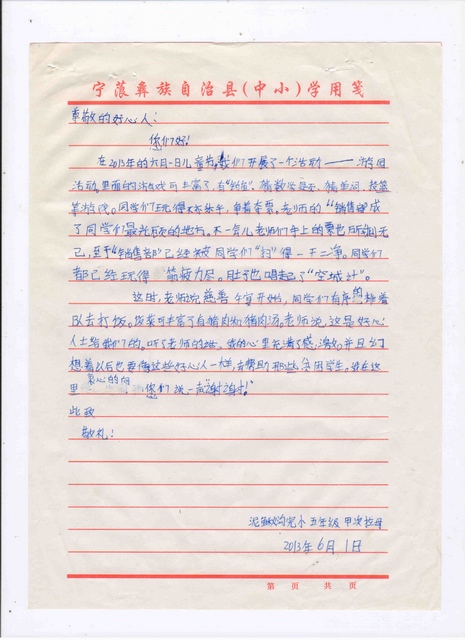 宁蒗彝族自治县(中小)学用笺
尊敬的好心人:
您们好!
在2013年的六月一日儿童节,我们开展了一个活动——游园
活动,里面的游戏可丰富了,有"钓鱼"、猜数学是否、猜单词、投篮
等游玩。同学们玩得不亦乐乎,拿着奖票。老师的"销售部"成
了同学们最光顾的地方。不一会儿老师们手上的票也所剩无
己,至于"销售部"已经被同学们"扫"得一干二净。同学们
都已经玩得筋疲力尽。肚子也唱起了"空城计"。
这时,老师说慈善午宴开始,同学们有序的排着
队去打饭。饭菜可丰富了有猪肉和猪肉汤。老师说,这是好心
人士给我们的。听了老师的话,我的心里充满了感激。并且幻
想着以后也要像这些好心人一样,去帮助那些贫困学生。我在这
里衷心的向您们说一声"谢谢!"
此致
敬礼!
五年级
2013年6月1日
第 页 共 页